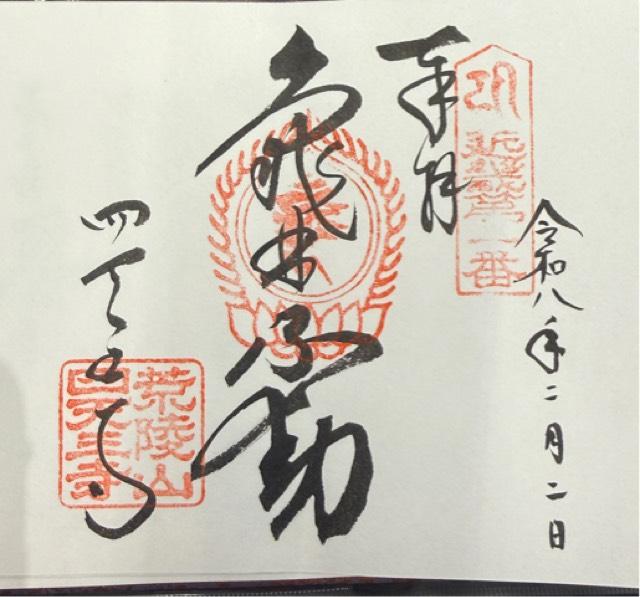 令和八年二月二日
近畿第一番
奉拝
亀井不動
四天王寺
荒陵山
四天王寺